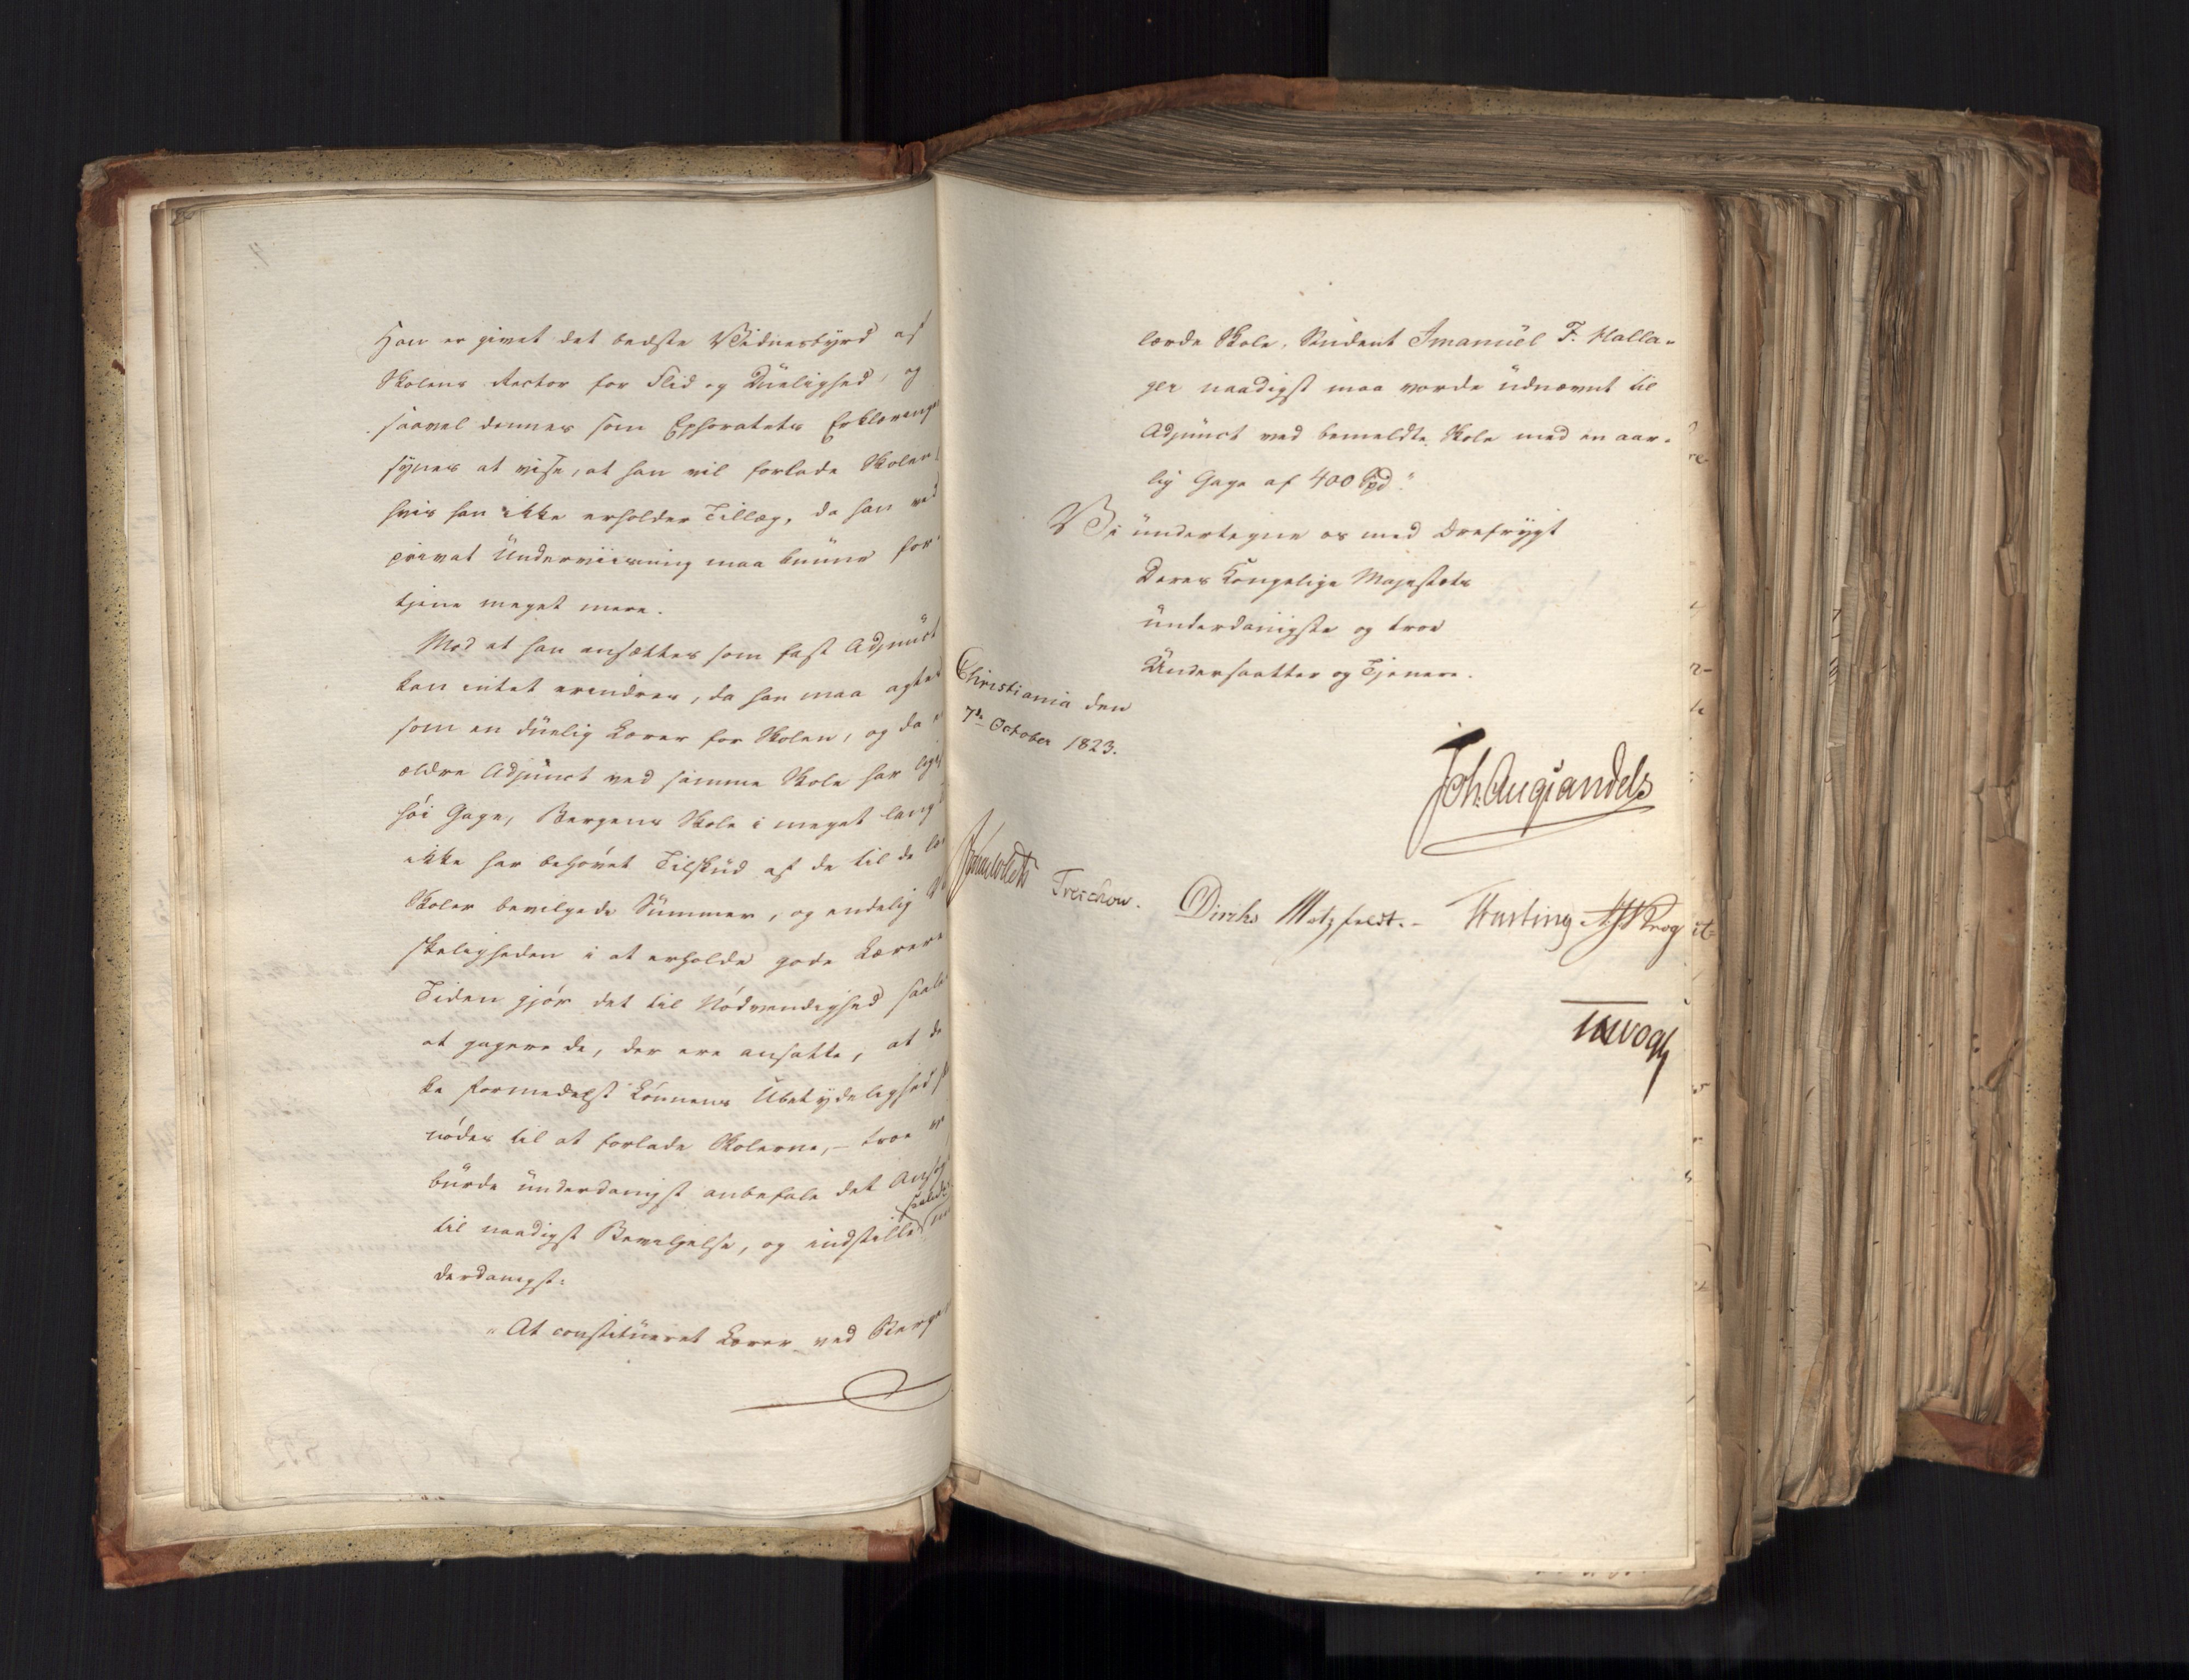 Han er givet det bedste Vidnesbyrd af
Skolens Rector for Flid og Duelighed, og
saavel dennes som Ephoratets Erklæringe
synes at vise, at han vil forlade Skolen
hvis han ikke erholder Tillæg, da han ved
privat Underviisning maa kunne for-
tjene meget mere.
Mod at han ansættes som fast Adjunct
kan intet erindres, da han maa agtes
som en duelig Lærer for Skolen, og da
ældre Adjunct ved samme Skole har
høi Gage, Bergens Skole i meget lang
ikke har behøvet Tilskud af de til de
Skoler bevilgede Summer, og endelig
skeligheden i at erholde gode Lærere
Tiden gjør det til Nødvendighed saale
at gagere de, der ere ansatte, at de
ke formedelst Lønnens Ubetydelighed
nødes til at forlade Skolerne, – troe
burde underdanigst anbefale det Ansøg
saaledes
til naadigst Bevilgelse, og indstille
derdanigst:
"At constitueret Lærer ved Berge
lærde Skole, Student Imanuel F. Halla-
ger naadigst maa vorde udnævnt til
Adjunct ved bemeldte Skole med en aar-
lig Gage af 400 Spd"
Vi undertegne os med Ærefrygt
Deres Kongelige Majestæts
underdanigste og troe
Undersaatter og Tjenere.
Christiania den
7de October 1823.
Joh. Aug Sandels
Treschow.
Diriks Motzfeldt. Fasting Krog
Vogt